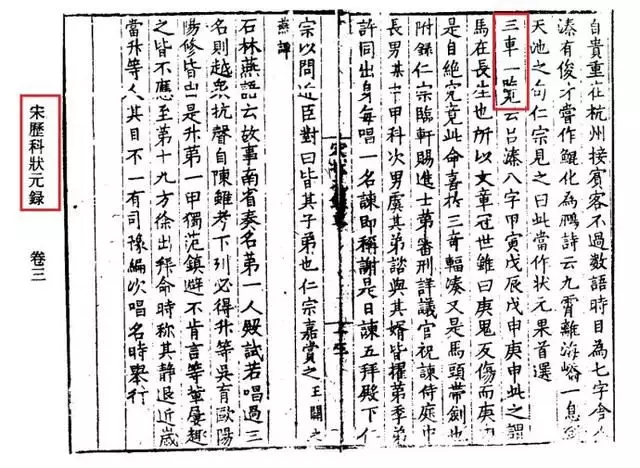 自貴重在杭州接賓客不過数語時目為七字舍人
溱有俊才嘗作鯤化為鵬詩云九霄離海嶠一息
天池之句仁宗見之曰此當作狀元果首選
三車一覧云吕溱八字甲寅戊辰戊申庚申此之謂
馬在長生也所以文章冠世雖曰庚鬼反傷而庚申
是自絶究竟此命喜於三竒輻湊又是馬頭帶劍也
附錄仁宗臨軒賜進士第審刑詳議官祝諫侍庭中
長男某中甲科次男虞其弟諮與其婿皆擢第季弟
許同出身每唱一名諫即稱謝是日諫五拜殿下仁
宗以問近臣對曰皆其子弟也仁宗嘉賞之 王闢之
燕譚
石林燕語云故事南省奏名第一人殿試若唱過三
名則越衆抗聲自陳雖考下列必得升等吳育歐陽
陽修皆出是升第一甲獨范鎮避不肯言等輩屢趣
之皆不應至第十九方徐出拜命時称其静退近歲
當升等人其目不一有司豫編次唱名時舉行
宋歷科狀元録 卷三